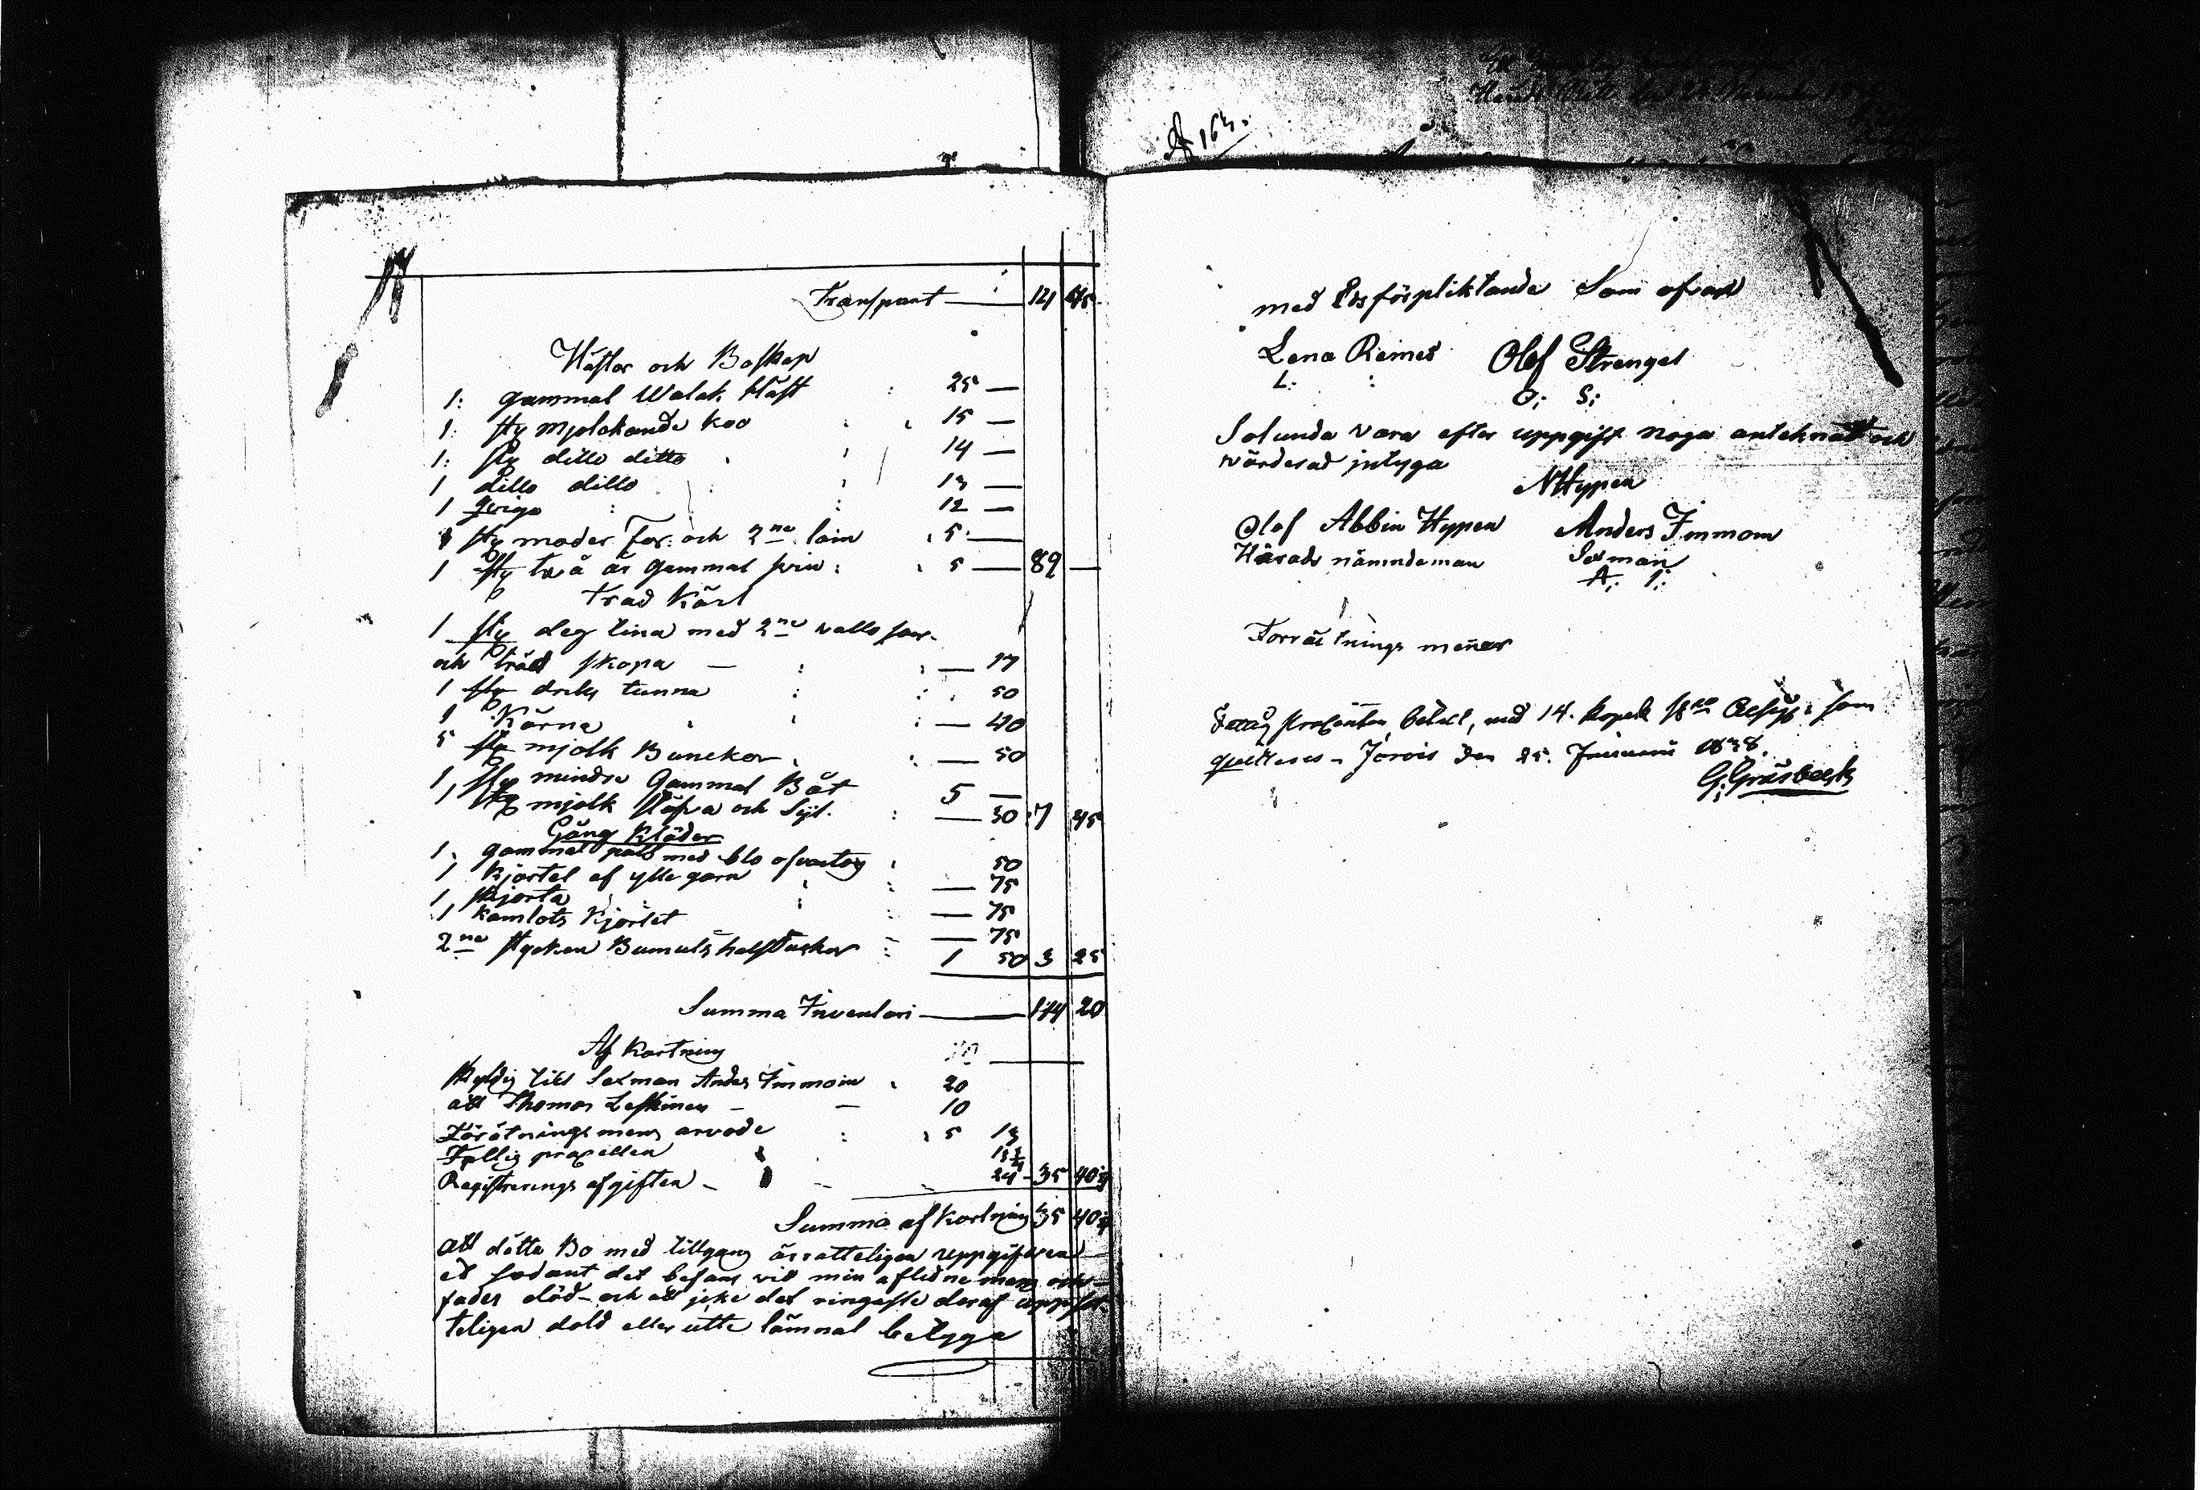 № 163.
Transport — 121 45
Hästar och Boskap
1: gammal Walak Häst : 25 —
1: sty Mjolckande koo : 15 —
1: sty ditto ditto : 14 —
1 ditto ditto : 13 —
1 qviga : 12 —
1 sty moder For: och 2ne lam : 5 —
1 sty två år gammal svin : 5 — 89 —
Träd Kärl
1 sty deg tina med 2ne
och träd skopa — : — 17
1 sty dricks tunna : 50
1 Kärna : — 40
5 sty mjolk Bunckor : — 50
1 sty mindre Gammal Båt 5 —
1, sty mjolk och : — 30 7 45
Gång Kläder
1. gammal päls med blo 50
1 kjortel af ylle garn : — 75
1 Skjorta : — 75
1 kamlots Kjortel — 75
2ne stycken Bumuls halsdukar : 1 50 3 25
Summa Inventari — 174 20
Af Kortning
Skyldig till Sexman Anders Immoin 20
att Thomas Leskinen — — 10
Förätnings mens arvode : 5 13
Fattig procenten
Registrerings afgiften — 24 35 40½
Summa af kortning 35 40½
att detta Bo med tillgang är rätteligen uppgifven
et sodant det befans vid min afledne mans och
faders död och att icke det ringaste deraf uppså-
teligen dold eller utte lämnat betyga
med Edsförpliktande Som ofvan
Lena Reines Olof Strengel
L: : O: S:
Solunda vara efter uppgift noga anteknatt och
wärderad intyga
N Hypen
Olof Abbin Hypen Anders Immoin
Härads nämndeman Sexman
A: I:
Forrätnings männer
Fattig procenten betalt, med 14. kopek som
quitteras – Jorois den 25. Januarii 1838.
G: Gråsbeck